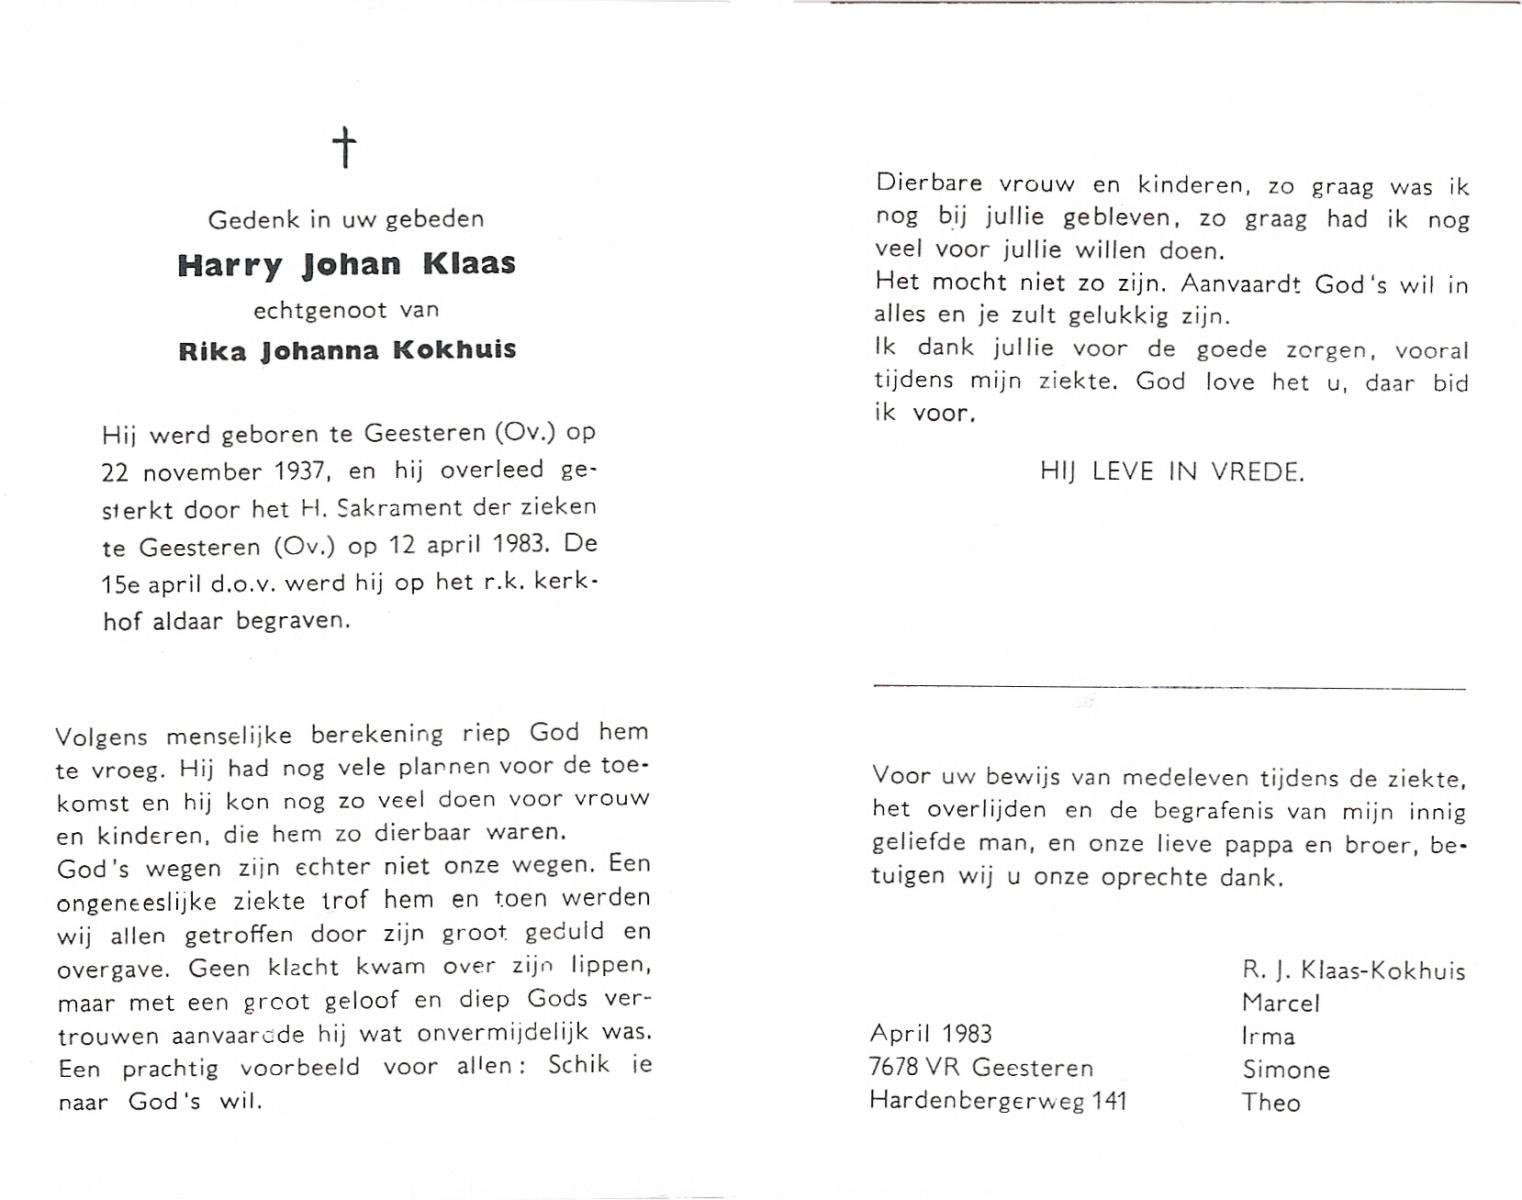 Gedenk in uw gebeden
Harry Johan Klaas
echtgenoot van
Rika Johanna Kokhuis
Hij werd geboren te Geesteren (Ov.) op
22 november 1937, en hij overleed ge-
sterkt door het H. Sakrament der zieken
te Geesteren (Ov.) op 12 april 1983. De
15e april d.o.v. werd hij op het r.k. kerk-
hof aldaar begraven.
Volgens menselijke berekening riep God hem
te vroeg. Hij had nog vele plannen voor de toe-
komst en hij kon nog zo veel doen voor vrouw
en kinderen, die hem zo dierbaar waren.
God's wegen zijn echter niet onze wegen. Een
ongeneeslijke ziekte trof hem en toen werden
wij allen getroffen door zijn groot geduld en
overgave. Geen klacht kwam over zijn lippen,
maar met een groot geloof en diep Gods ver-
trouwen aanvaardde hij wat onvermijdelijk was.
Een prachtig voorbeeld voor allen: Schik je
naar God's wil.
Dierbare vrouw en kinderen, zo graag was ik
nog bij jullie gebleven, zo graag had ik nog
veel voor jullie willen doen.
Het mocht niet zo zijn. Aanvaardt God's wil in
alles en je zult gelukkig zijn.
Ik dank jullie voor de goede zorgen, vooral
tijdens mijn ziekte. God love het u, daar bid
ik voor.
HIJ LEVE IN VREDE.
Voor uw bewijs van medeleven tijdens de ziekte,
het overlijden en de begrafenis van mijn innig
geliefde man, en onze lieve pappa en broer, be-
tuigen wij u onze oprechte dank.
R. J. Klaas-Kokhuis
Marcel
Irma
Simone
Theo
April 1983
7678 VR Geesteren
Hardenbergerweg 141